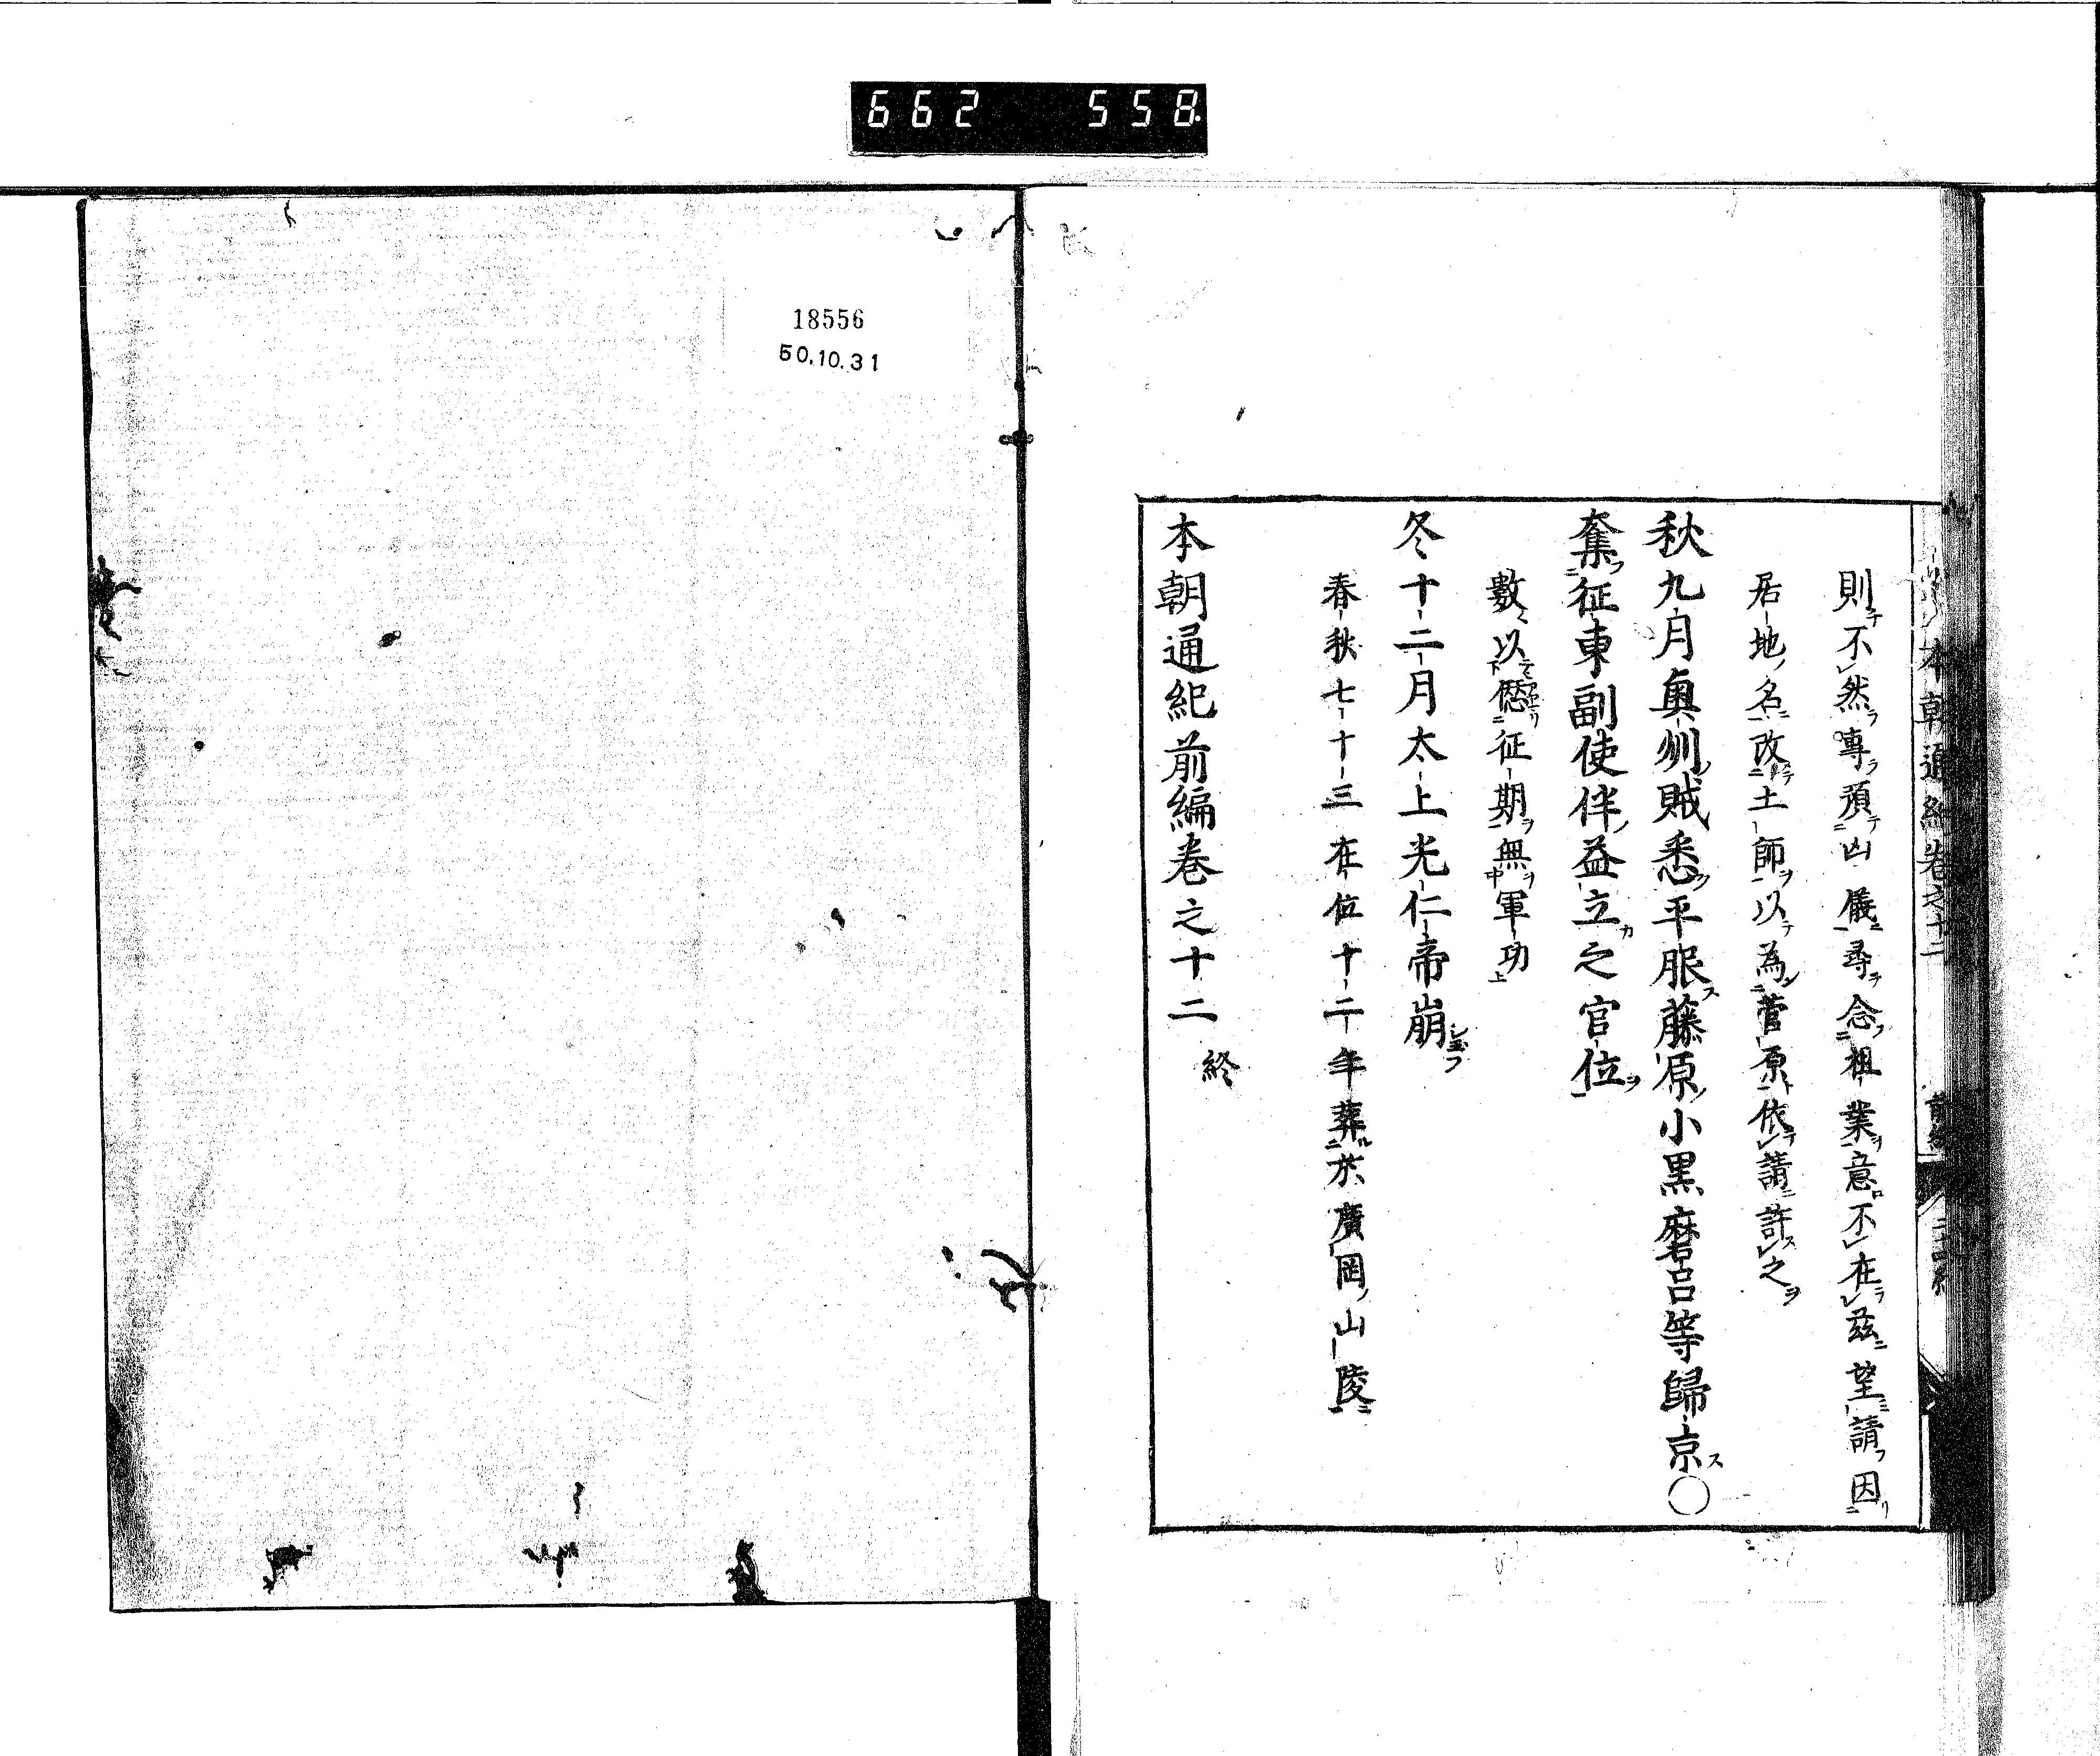 662 558
本朝通紀卷之十二 前編
則不然專預凶儀尋念祖業意不在茲望請因
居地名改土師以為菅原依請許之
秋九月奥州賊悉平服藤原小黒麿呂等歸京○
奪征東副使伴益立之官位
數以愆征期無軍功
冬十二月太上光仁帝崩
春秋七十三在位十二年葬於廣岡山陵
本朝通紀前編卷之十二終
18556
50.10.31